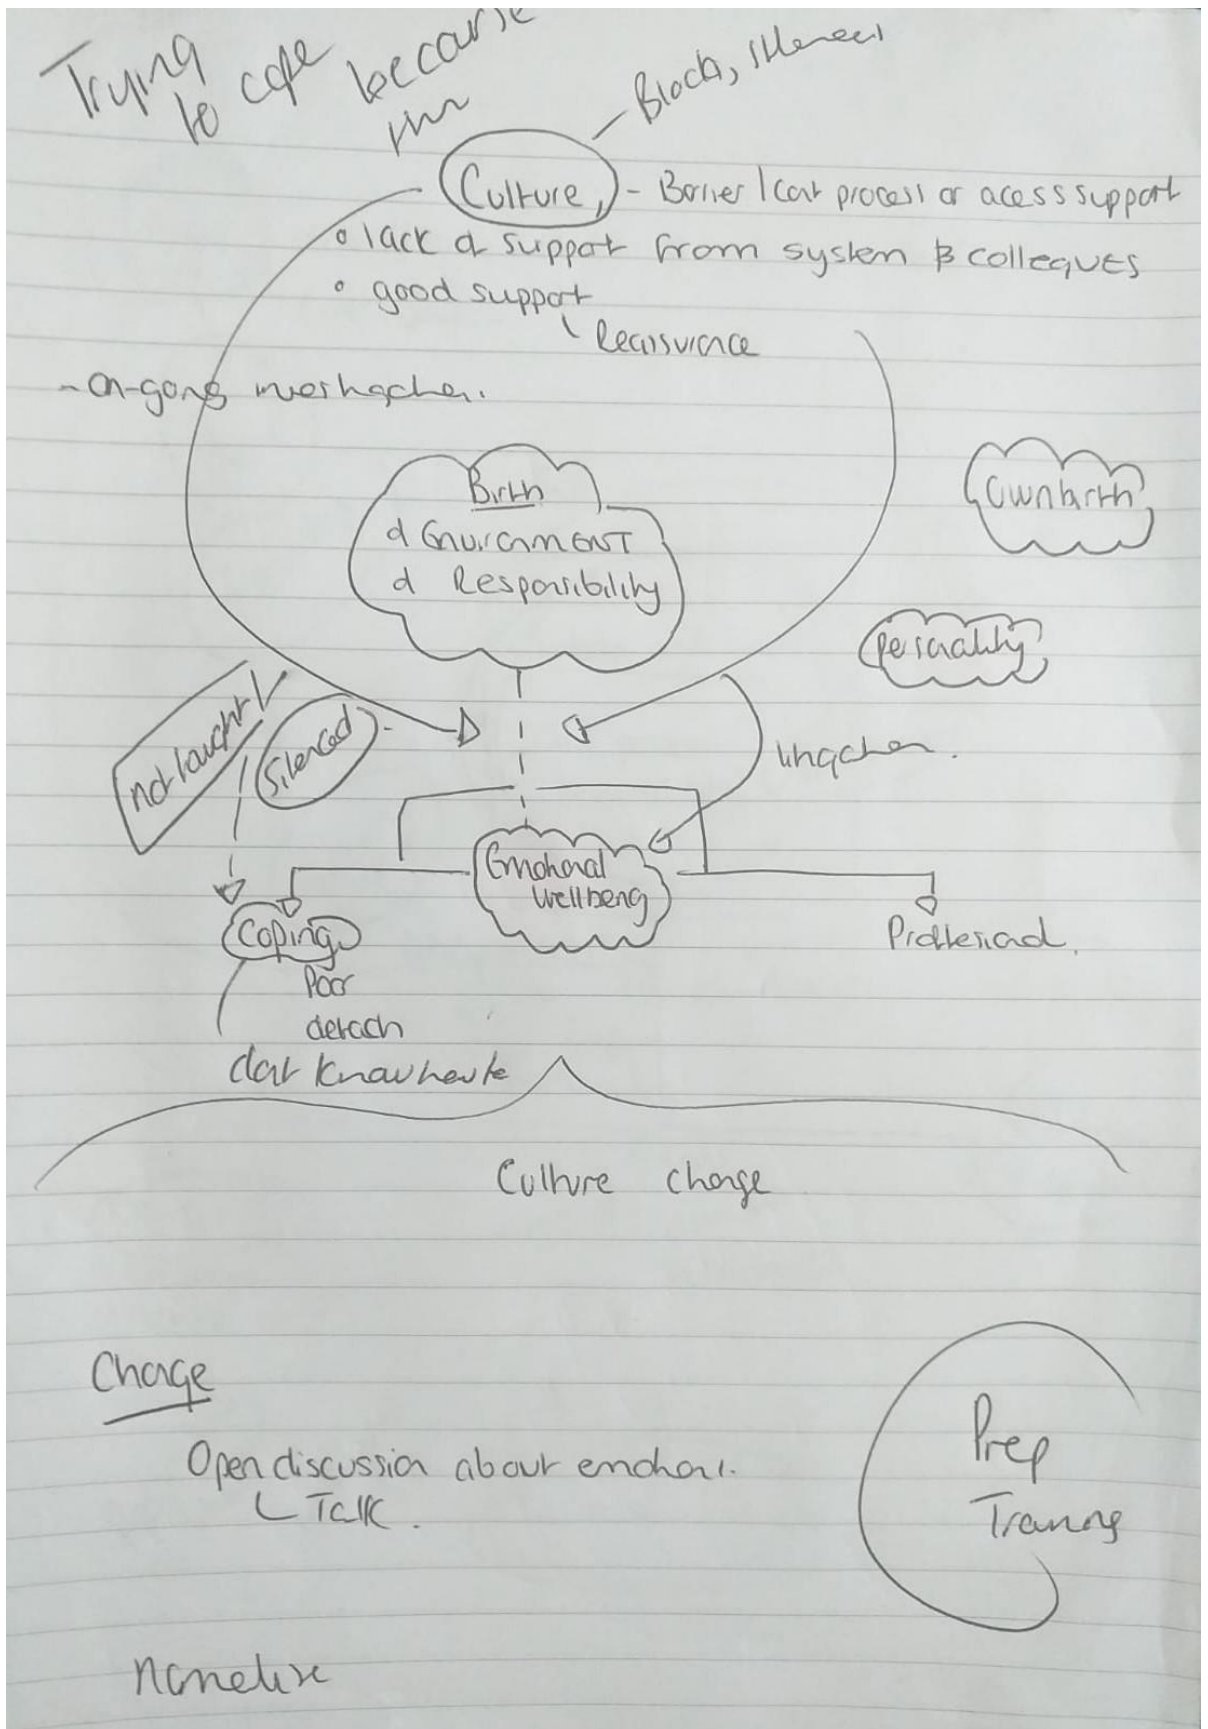 Trying to cope because
Blocks, silences
Culture, - Barrier / can't process or acess support
lack of support from system & colleques
good support
Reassurance
- On-going investigation.
Birth
Environment
Responsibility
Own birth
Personality
not taught
Silenced
litigation.
Emotional
Wellbeing
Coping
Professional.
Poor
detach
don't know how to
Culture change
Change
Open discussion about emotions.
Talk.
Prep
Training